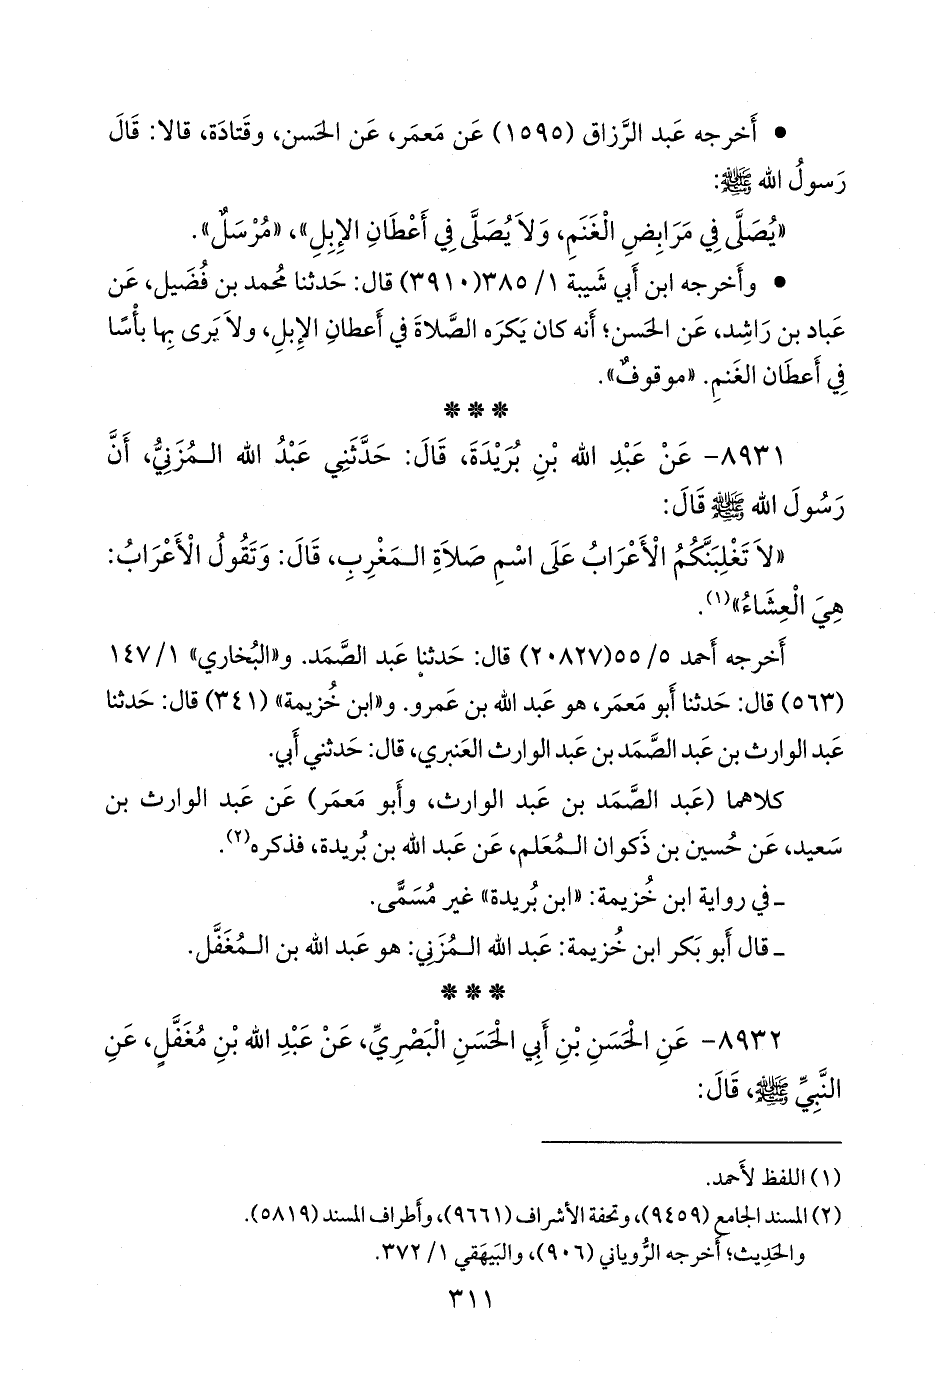 • أَخرجه عَبد الرَّزاق (١٥٩٥) عَن مَعمَر، عَن الحَسن، وقَتادَة، قالا: قَالَ
رَسولُ الله ﷺ:
«يُصَلَّى فِي مَرَابِضِ الْغَنَمِ، وَلاَ يُصَلَّى فِي أَعْطَانِ الإِبِلِ»، «مُرْسَلٌ».
• وأَخرجه ابن أَبي شَيبة ١/ ٣٨٥(٣٩١٠) قال: حَدثنا مُحمد بن فُضَيل، عَن
عَباد بن رَاشِد، عَن الحَسن؛ أَنه كان يَكرَه الصَّلاةَ في أَعطان الإِبل، ولاَ يَرى بِها بأْسًا
فِي أَعطَان الغَنمِ. «موقوفٌ».
***
٨٩٣١- عَنْ عَبْدِ الله بْنِ بُرَيْدَةَ، قَالَ: حَدَّثَنِي عَبْدُ الله الـمُزَنِيُّ، أَنَّ
رَسُولَ الله ﷺ قَالَ:
«لاَ تَغْلِبَنَّكُمُ الأَعْرَابُ عَلَى اسْمِ صَلاَةِ الـمَغْرِبِ، قَالَ: وَتَقُولُ الأَعْرَابُ:
هِيَ الْعِشَاءُ»(١).
أَخرجه أَحمد ٥/ ٥٥(٢٠٨٢٧) قال: حَدثنا عَبد الصَّمَد. و«البُخاري» ١/ ١٤٧
(٥٦٣) قال: حَدثنا أَبو مَعمَر، هو عَبد الله بن عَمرو. و«ابن خُزيمة» (٣٤١) قال: حَدثنا
عَبد الوارث بن عَبد الصَّمَد بن عَبد الوارث العَنبري، قال: حَدثني أَبي.
كلاهما (عَبد الصَّمَد بن عَبد الوارث، وأَبو مَعمَر) عَن عَبد الوارث بن
سَعيد، عَن حُسين بن ذَكوان الـمُعَلم، عَن عَبد الله بن بُريدة، فذكره(٢).
ـ في رواية ابن خُزيمة: «ابن بُريدة» غير مُسَمًّى.
ـ قال أَبو بَكر ابن خُزيمة: عَبد الله الـمُزَني: هو عَبد الله بن الـمُغَفَّل.
***
٨٩٣٢- عَنِ الْحَسَنِ بْنِ أَبِي الْحَسَنِ الْبَصْرِيِّ، عَنْ عَبْدِ الله بْنِ مُغَفَّلٍ، عَنِ
النَّبِيِّ ﷺ، قَالَ:
(١) اللفظ لأَحمد.
(٢) المسند الجامع (٩٤٥٩)، وتحفة الأشراف (٩٦٦١)، وأَطراف المسند (٥٨١٩).
والحَدِيث؛ أَخرجه الرُّوياني (٩٠٦)، والبَيهَقي ١/ ٣٧٢.
٣١١